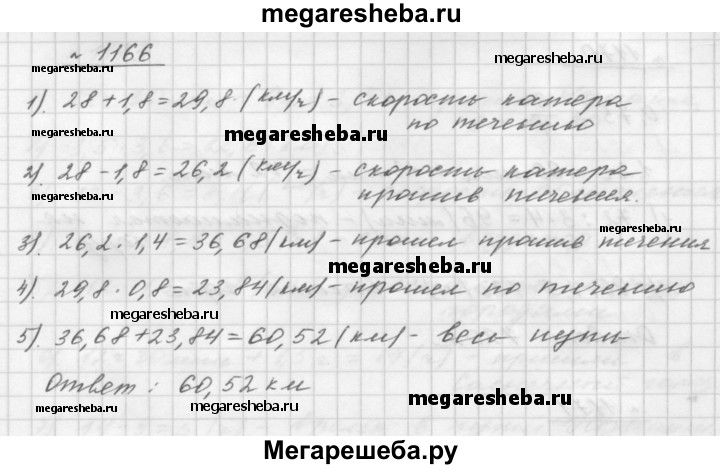 megaresheba.ru
№ 1166
megaresheba.ru
megaresheba.ru
1). 28+1,8=29,8 (км/ч) - скорость катера
по течению
megaresheba.ru
megaresheba.ru
2). 28-1,8=26,2 (км/ч) - скорость катера
против течения.
megaresheba.ru
megaresheba.ru
3). 26,2·1,4=36,68 (км) - прошел против течения
megaresheba.ru
4). 29,8·0,8=23,84 (км) - прошел по течению
megaresheba.ru
5). 36,68+23,84=60,52 (км) - весь путь
Ответ: 60,52 км
megaresheba.ru
megaresheba.ru
megaresheba.ru
Мегарешеба.ру